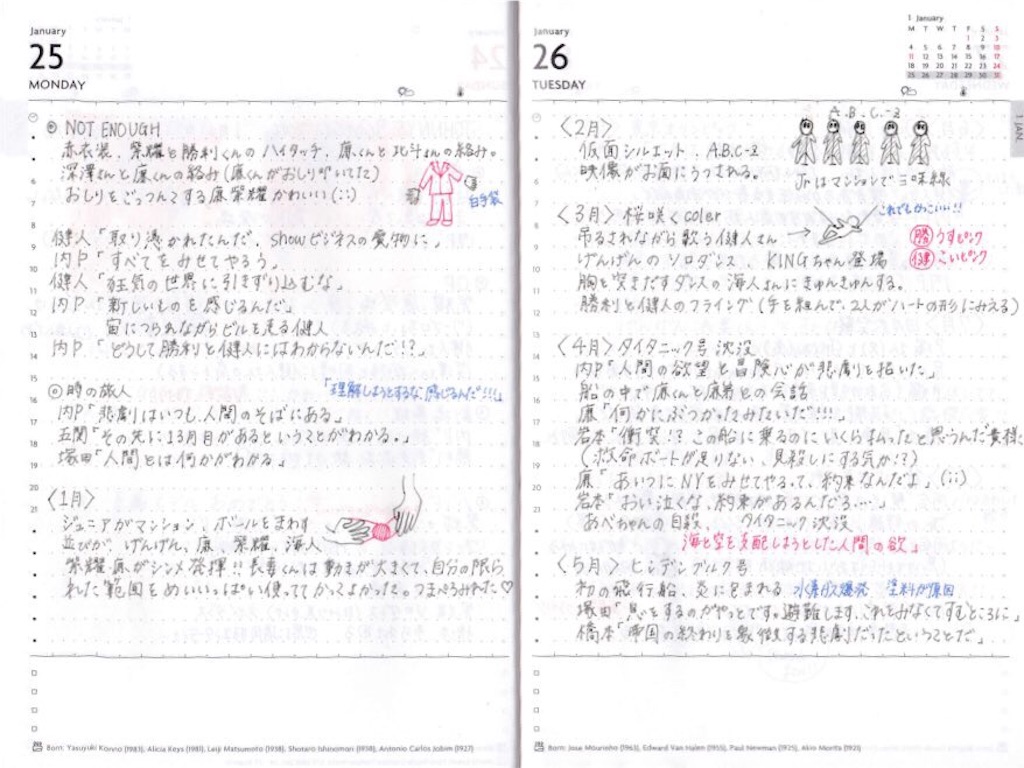 January
25
MONDAY
◎ NOT ENOUGH
赤衣装、紫耀と勝利くんのハイタッチ、廉くんと北斗さんの絡み。
深澤さんと廉くんの絡み(廉くんがおしり叩いてた)
おしりをごっつんこする廉紫耀かわいい(::)
白手袋
健人「取り憑かれたんだ、showビジネスの魔物に」
内P「すべてをみせてやろう」
健人「狂気の世界に引きずり込むな」
内P「新しいものを感じるんだ」
宙につられながらビルを走る健人
内P「どうして勝利と健人にはわからないんだ!?」
「理解しようとするな感じるんだ!!!」
◎ 時の旅人
内P「悲劇はいつも人間のそばにある」
五関「その先に13月目があるということがわかる。」
塚田「人間とは何かがわかる」
〈1月〉
ジュニアがマンション、ボールをまわす
並びが、げんげん、廉、紫耀、海人
紫耀、廉がシンメ発揮!!長妻くんは動きが大きくて、自分の限ら
れた範囲をめいいっぱい使っててかっこよかった。つまぺろみれた♡
Born: Yasuyuki Konno (1983), Alicia Keys (1981), Leiji Matsumoto (1938), Shotaro Ishinomori (1938), Antonio Carlos Jobim (1927)
January
26
TUESDAY
1 January
M T W T F S S
1 2 3
4 5 6 7 8 9 10
11 12 13 14 15 16 17
18 19 20 21 22 23 24
25 26 27 28 29 30 31
1 JAN
〈2月〉
A.B.C-Z
仮面シルエット、A.B.C-Z
映像がお面にうつされる。
Jrはマンションで三味線
〈3月〉桜咲くcolor
これでもかっこいい!!
吊るされながら歌う健人さん →
勝 うすピンク
げんげんのソロダンス KINGちゃん登場
健 こいピンク
胸を突きだすダンスの海人さんにきゅんきゅんする。
勝利と健人のフライング(手を組んで、2人がハートの形にみえる)
〈4月〉タイタニック号 沈没
内P「人間の欲望と冒険心が悲劇を招いた」
船の中で廉くんと廉弟との会話
廉「何かにぶつかったみたいだ!!!」
岩本「衝突!?この船に乗るのにいくら払ったと思うんだ貴様
(救命ボートが足りない、見殺しにする気か!?)
廉「あいつにNYをみせてやるって、約束なんだよ」(::)
岩本「おい泣くな、約束があるんだろ…」
あべちゃんの自殺、 タイタニック沈没
海と空を支配しようとした人間の欲」
〈5月〉ヒンデンブルク号
初の飛行船、炎につつまれる 水素ガス爆発 塗料が原因
塚田「息をするのがやっとです。避難します、これをみなくてすむところに」
橋本「帝国の終わりを象徴する悲劇だったということだ」
Born: Jose Mourinho (1963), Edward Van Halen (1955), Paul Newman (1925), Akio Morita (1921)